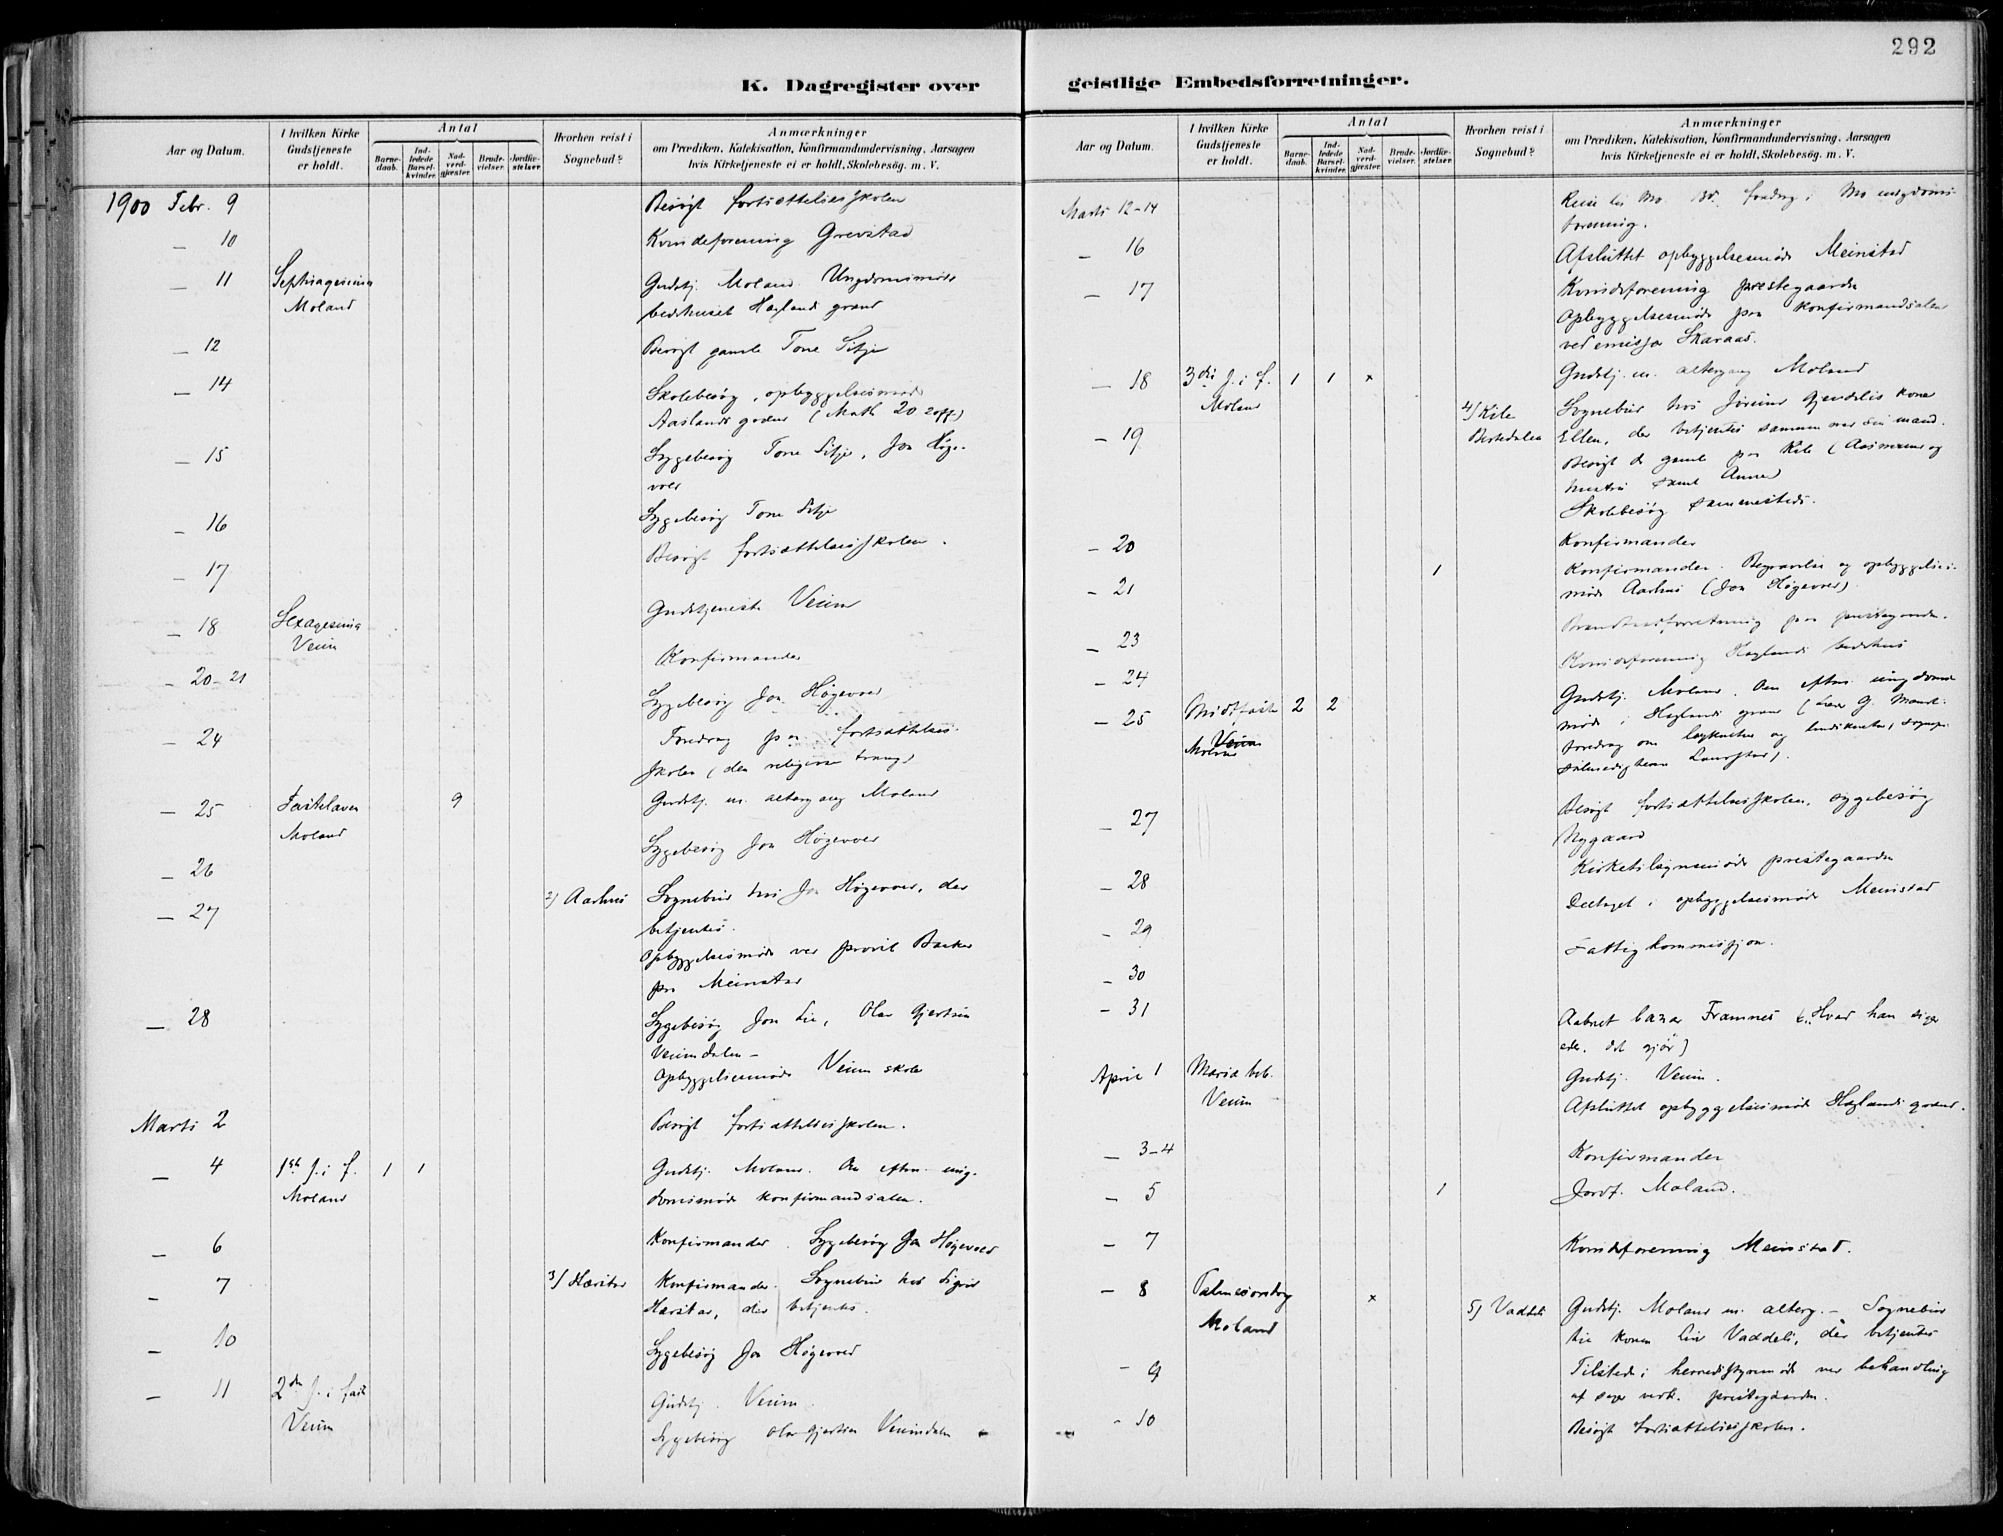 292
K. Dagregister over
geistlige Embedsforretninger.
Aar og Datum.
I hvilken Kirke
Gudstjeneste
er holdt.
Antal
Barne-
daab.
Ind-
ledede
Barsel-
kvinder.
Nad-
verd-
gjæster.
Brude-
vielser.
Jordfæ-
stelser.
Hvorhen reist i
Sognebud?
Anmærkninger
om Prædiken, Katekisation, Konfirmandundervisning, Aarsagen
hvis Kirketjeneste ei er holdt, Skolebesøg. m. V.
1900 Febr. 9 Besøgt fortsættelsesskolen
— 10 Kvindeforening Grevstad
— 11 Septuagesima Gudstj. Moland. Ungdomsmøde
Moland bedehuset Høglands grend
— 12 Besøgt gamle Tone Sitje
— 14 Skolebesøg, opbyggelsesmøde
Aaslands grend (Math 20 20ff)
— 15 Sygebesøg Tone Sitje, Jon Høge-
vold
— 16 Sygebesøg Tone Sitje
— 17 Besøgt fortsættelsesskolen.
— 18 Sexagesima Gudstjeneste Veum
Veum
— 20-21 Konfirmander
Sygebesøg Jon Høgevold
— 24 Foredrag paa fortsættelses-
skolen (den religiøse trang)
— 25 Fastelavn 9 Gudstj. m. altergang Moland
Moland Sygebesøg Jon Høgevold
— 26
— 27 2) Aarhus Sognebud hos Jon Høgevold, der
betjentes.
Opbyggelsesmøde ved provst Barker
paa Meinstad
— 28 Sygebesøg Jon Lie, Olav Gjertsen
Veumdalen —
Opbyggelsesmøde Veum skole
Marts 2 Besøgt fortsættelsesskolen.
— 4 1ste s. i f. 1 1 Gudstj. Moland. Om eftm. ung-
Moland domsmøde konfirmandsalen.
— 6 Konfirmander. Sygebesøg Jon Høgevold
— 7 3) Hæristad Konfirmander. Sognebud hos Sigrid
Hæristad, der betjentes.
— 10 Sygebesøg Jon Høgevold
— 11 2den s. i fast. Gudstj. Veum.
Veum Sygebesøg Olav Gjertsen Veumdalen
Aar og Datum.
I hvilken Kirke
Gudstjeneste
er holdt.
Antal
Barne-
daab.
Ind-
ledede
Barsel-
kvinder.
Nad-
verd-
gjæster.
Brude-
vielser.
Jordfæ-
stelser.
Hvorhen reist i
Sognebud?
Anmærkninger
om Prædiken, Katekisation, Konfirmandundervisning, Aarsagen
hvis Kirketjeneste ei er holdt, Skolebesøg. m. V.
Marts 12-14 Reise til Mo. foredrag i Mo ungdoms-
forening.
— 16 Afsluttet opbyggelsesmøde Meinstad
— 17 Kvindeforening prestegaarden
Opbyggelsesmøde paa konfirmandsalen
ved emissær Skaraas.
— 18 3die s. i f. 1 1 x Gudstj. m. altergang Moland
Moland
— 19 4) Kile Sognebud hos Gjendals kone
Ellen, der betjentes sammen med sin mand.
Besøgt de gamle paa Kile (Aasmund og
hustru samt Anne)
Skolebesøg sammesteds.
— 20 Konfirmander
— 21 1 Konfirmander. Begravelse og opbyggelses-
møde Aarhus (Jon Høgevold).
— 23 paa prestegaarden.
— 24 Kvindeforening Høglands bedehus
— 25 Midtfaste 2 2 Gudstj. Moland. Om eftm. ungdoms-
Veum møde i Høglands grend
Moland foredrag om
— 27 Besøgt fortsættelsesskolen, sygebesøg
Nygaard
— 28 Kirketilsynsmøde prestegaarden
— 29 Deltaget i opbyggelsesmøde Meinstad
— 30 Fattigkommission.
— 31 Aabnet bazar Framnes ("Hvad han siger
eder, det gjør")
April 1 Mariæ beb. Gudstj. Veum.
Veum Afsluttet opbyggelsesmøde Høglands grend.
— 3-4 Konfirmander
— 5 1 Jordf. Moland.
— 7 Kvindeforening Meinstad.
— 8 Palmesøndag x 5) Vaddeli Gudstj. Moland m. alterg. — Sognebud
Moland til konen Liv Vaddeli, der betjentes
— 9 Tilstede i herredsstyremøde ved behandling
af sager vedk. prestegaarden.
— 10 Besøgt fortsættelsesskolen.